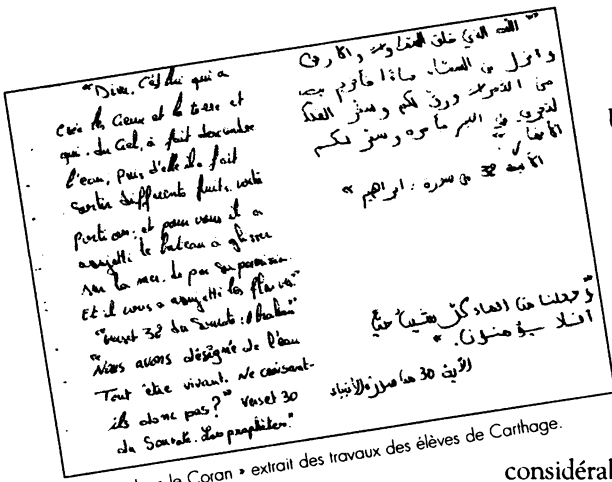 "Dieu, C'est lui qui a
crée les Cieux et la terre et
qui, du Ciel, à fait descendre
l'eau, Puis, d'elle il a fait
Sortir différents fruits, votre
Portion; et pour vous il a
assujetti le bateau à glisser
sur la mer, de par Sa permission.
Et il vous a assujetti les fleuves"
"verset 32 da Sourate: Ibrahim"
"Nous avons désigné de l'eau
Tout être vivant. Ne croisant-
ils donc pas?" Verset 30
da Sourate. Les prophètes."
"الله الذي خلق السماوات والأرض
وأنزل من السماء ماءا فأخرج به
من الثمرات ورزق لكم وسخر الفلك
لتجري في البحر بأمره وسخر لكم
الأنهار"
الآية 32 من سورة: ابراهيم"
"وجعلنا من الماء كل شيئا حيا
أفلا يؤمنون."
الآية 30 من سورة الأنبياء
le Coran » extrait des travaux des élèves de Carthage.
considéral